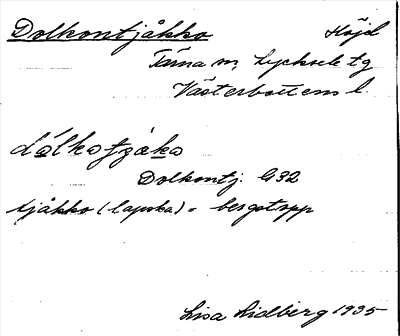 Dolkontjåkko Höjd
Tärna sn, Lycksele lg
Västerbottens l.
Dolkontj. G32
tjåkko (lapska) = bergstopp
Lisa Lidberg 1935